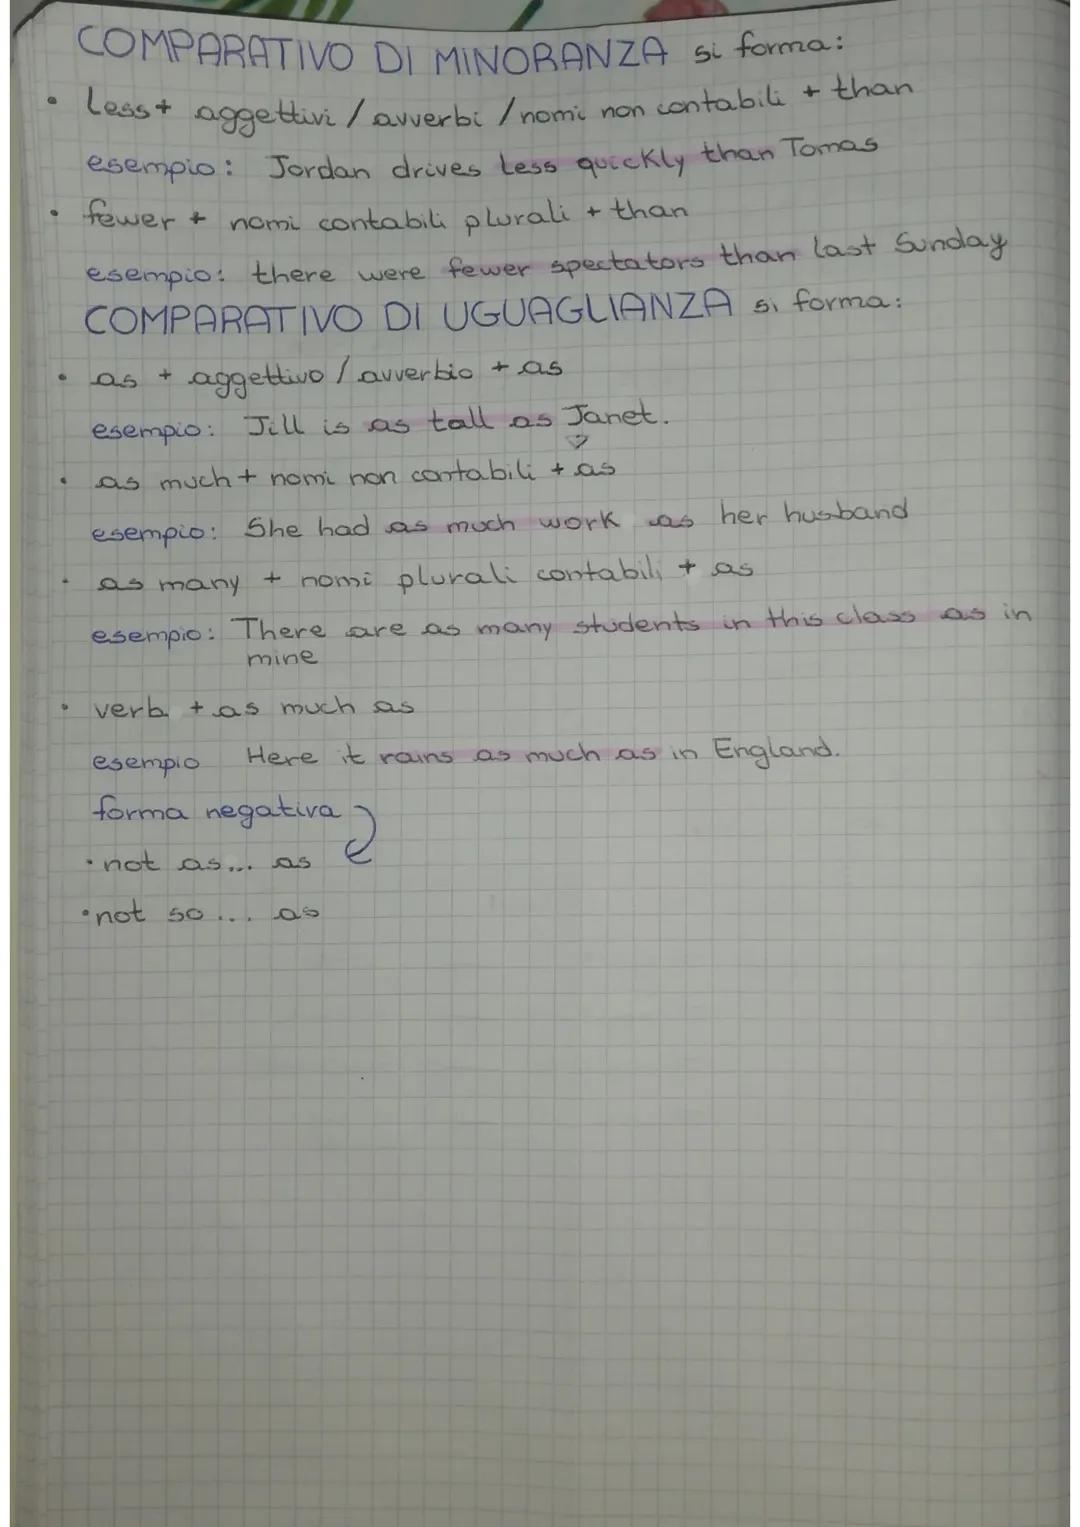 COMPARATIVO DI MINORANZA si forma:
• Less + aggettivi / avverbi / nomi non contabili + than
esempio: Jordan drives less quickly than Tomas
• fewer + nomi contabili plurali + than
esempio: there were fewer spectators than last Sunday
COMPARATIVO DI UGUAGLIANZA si forma:
• as + aggettivo / avverbio + as
esempio: Jill is as tall as Janet.
• as much + nomi non contabili + as
esempio: She had as much work as her husband
• as many + nomi plurali contabili + as
esempio: There are as many students in this class as in
mine
• verb + as much as
esempio Here it rains as much as in England.
forma negativa
• not as... as
• not so ... as